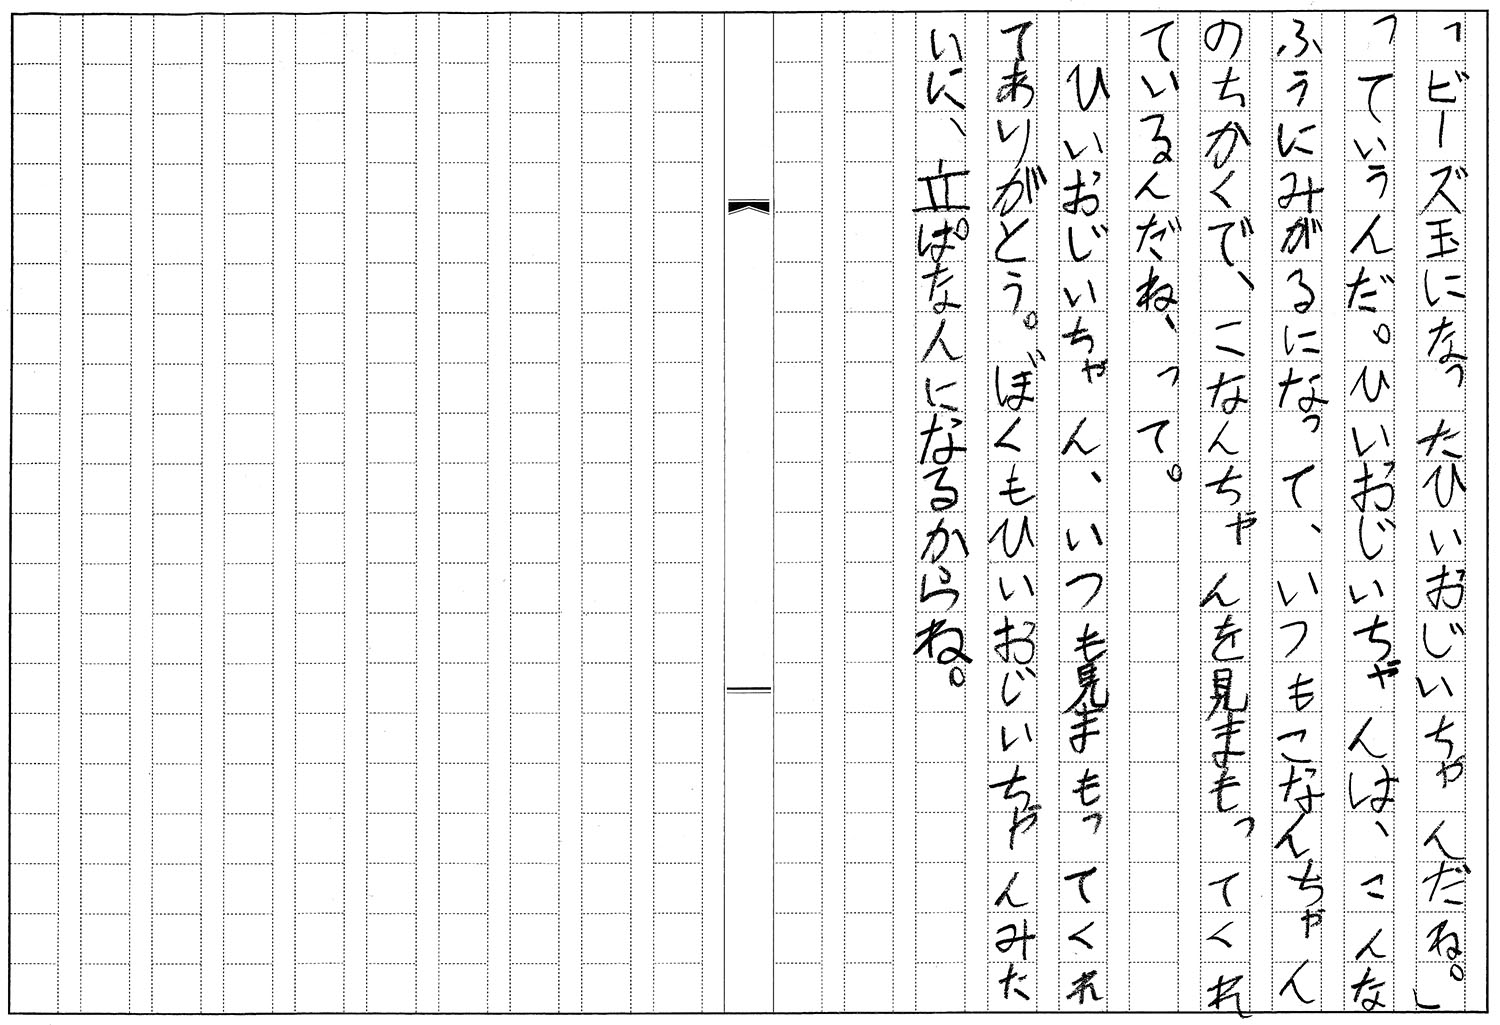 「ビーズ玉になったひいおじいちゃんだね。」
っていうんだ。ひいおじいちゃんは、こんな
ふうにみがるになって、いつもこなんちゃん
のちかくで、こなんちゃんを見まもってくれ
ているんだね、って。
ひいおじいちゃん、いつも見まもってくれ
てありがとう。ぼくもひいおじいちゃんみた
いに、立ぱなんになるからね。